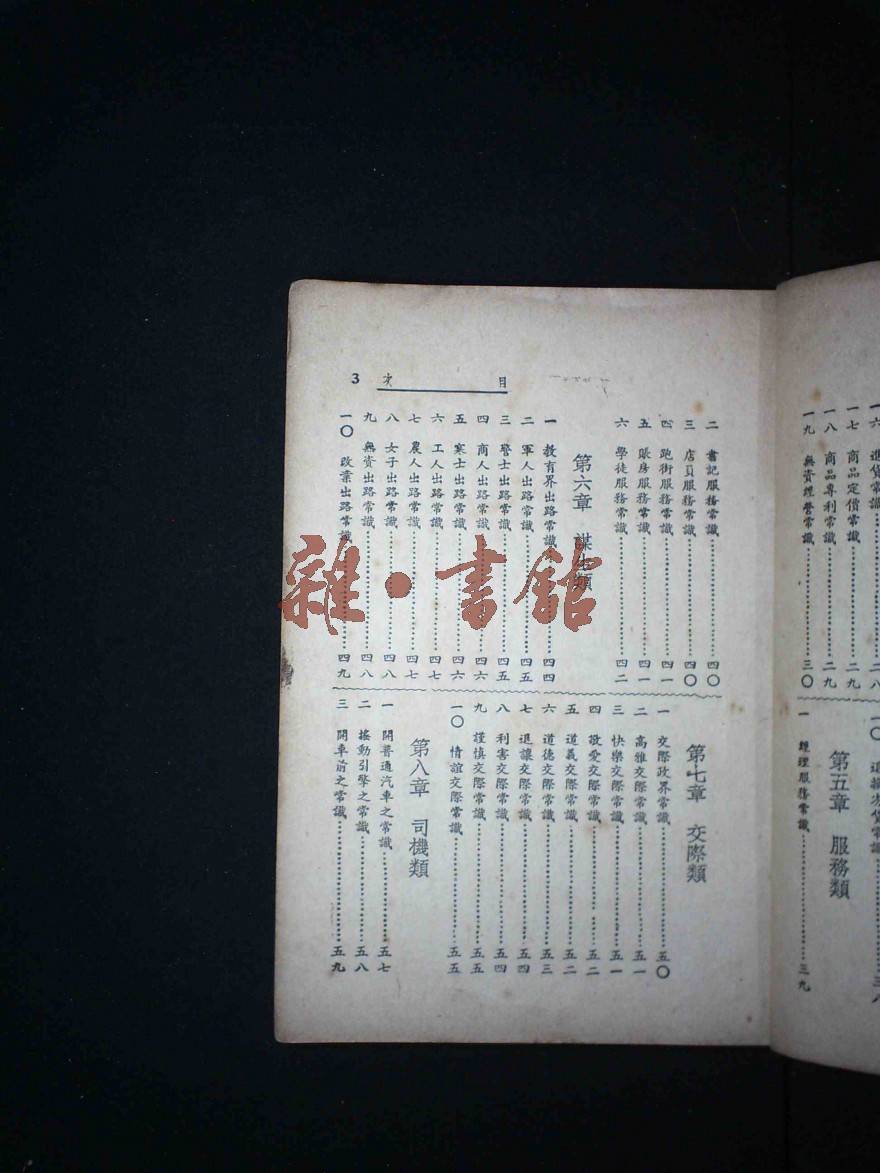 一六 進貨常識……二八
一七 商品定價常識……二九
一八 商品專利常識……二九
一九 無資經營常識……三〇
第五章 服務類
一 經理服務常識……三九
目次 3
二 書記服務常識……四〇
三 店員服務常識……四〇
四 跑街服務常識……四一
五 賬房服務常識……四一
六 學徒服務常識……四二
第六章 謀生類
一 教育界出路常識……四四
二 軍人出路常識……四五
三 警士出路常識……四五
四 商人出路常識……四六
五 寒士出路常識……四六
六 工人出路常識……四七
七 農人出路常識……四七
八 女子出路常識……四八
九 無資出路常識……四八
一〇 改業出路常識……四九
第七章 交際類
一 交際政界常識……五〇
二 高雅交際常識……五一
三 快樂交際常識……五一
四 敬愛交際常識……五二
五 道義交際常識……五二
六 道德交際常識……五三
七 退讓交際常識……五四
八 利害交際常識……五四
九 謹慎交際常識……五五
一〇 情誼交際常識……五五
第八章 司機類
一 開普通汽車之常識……五七
二 搖動引擎之常識……五八
三 開車前之常識……五九
雜·書館